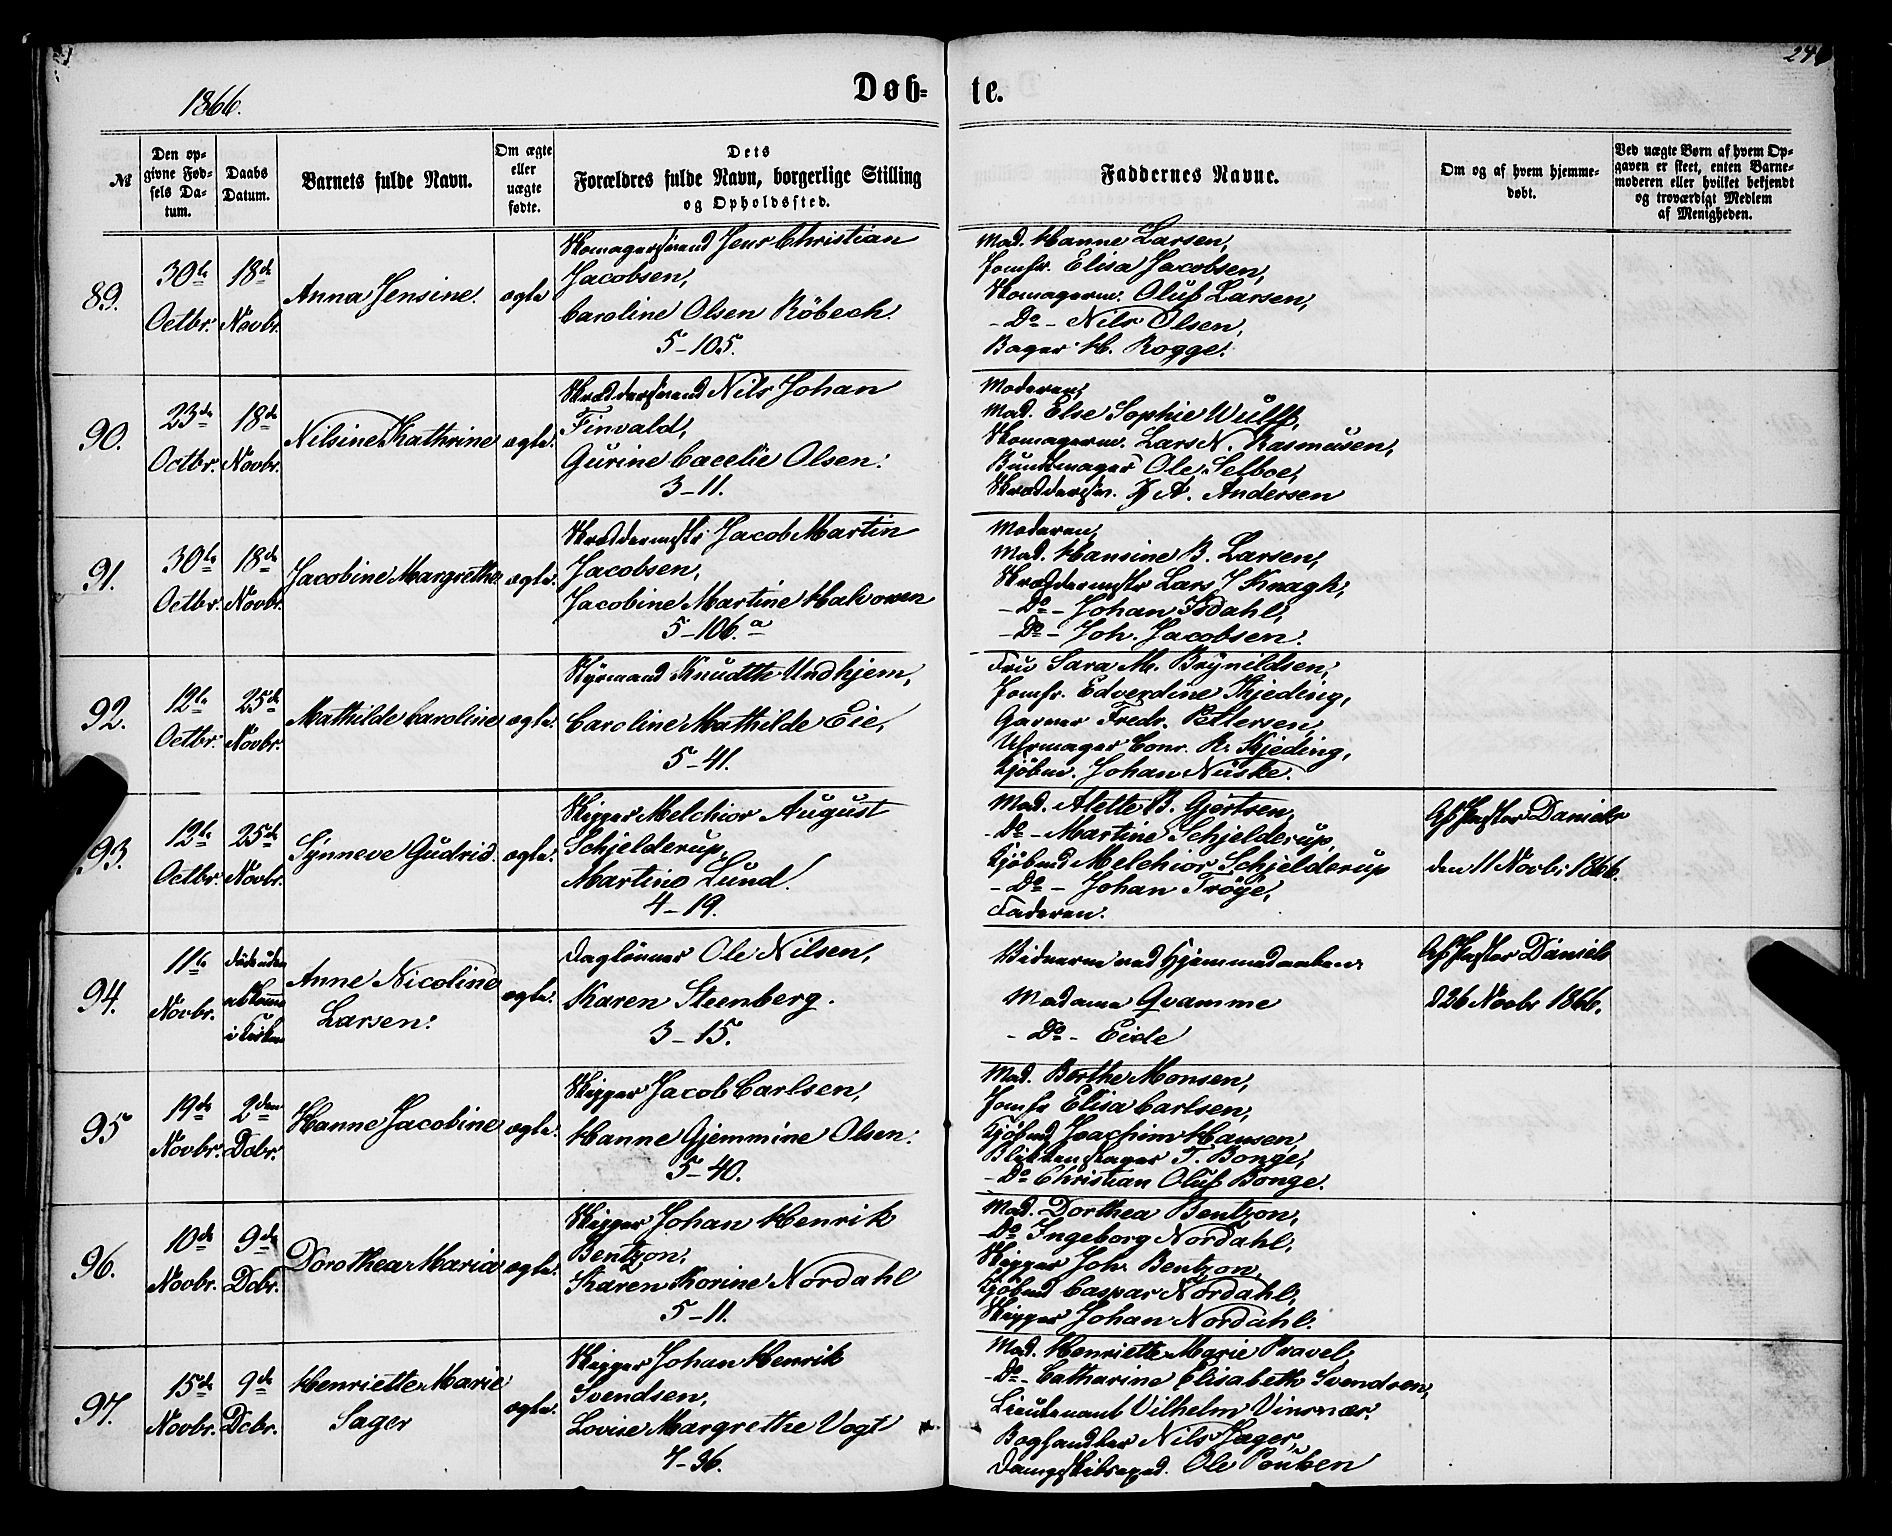 24
1866.
Døb-
te.
№
Den op-
givne Fød-
sels Da-
tum.
Daabs
Datum.
Barnets fulde Navn.
Om ægte
eller
uægte
fødte.
Dets
Forældres fulde Navn, borgerlige Stilling
og Opholdssted.
Faddernes Navne.
Om og af hvem hjemme-
døbt.
Ved uægte Børn af hvem Op-
gaven er skeet, enten Barne-
moderen eller hvilket bekjendt
og troværdigt Medlem
af Menigheden.
89.
30te
Octbr.
18de
Novbr.
Anna Jensine.
ægte
Skomagersvend Jens Christian
Jacobsen,
Caroline Olsen Röbech
5-105.
Mad. Hanne Larsen,
Jomfr. Elisa Jacobsen,
Skomagerm. Oluf Larsen,
-Do- Nils Olsen,
Bager H. Rogge.
90.
23de
Octbr.
18de
Novbr.
Nilsine Kathrine
ægte.
Skræddersvend Nils Johan
Finvald,
Gurine Cacelie Olsen.
3-11.
Moderen,
Mad. Else Sophie Wulff,
Skomagerm. Lars N. Rasmusen,
Buntmager Ole Selboe,
Skræddersv. A. Andersen
91.
30te
Octbr.
18de
Novbr.
Jacobine Margrethe
ægte.
Skræddermestr Jacob Martin
Jacobsen,
Jacobine Martine Halvorsen
5-106.a
Moderen,
Mad. Hansine B. Larsen,
Skræddermestr Lars J Knagh,
-Do- Johan Isdahl,
-Do- Joh. Jacobsen.
92.
12te
Octbr.
25de
Novbr.
Mathilde Caroline
ægte.
Styrmand Knudth Undhjem,
Caroline Mathilde Eie,
5-41.
Fru Sara M. Brynildsen,
Jomfr. Edverdine Kjeding,
Garver Fredr. Pettersen,
Uhrmager Conr. R. Kjeding,
Kjøbm. Johan Nüske.
93.
12te
Octbr.
25de
Novbr.
Synneve Gudrid.
ægte.
Skipper Melchior August
Schjelderup,
Martine Lund.
4-19.
Mad. Alette B. Gjertsen,
-Do- Martine Schjelderup,
Kjøbmd Melchior Schjelderup
-Do- Johan Tröye,
Faderen.
Af Pastor Daniels
den 11 Novbr 1866.
94.
11te
Novbr.
Død uden
at komme
i Kirken
Anne Nicoline
Larsen.
ægte.
Daglønner Ole Nilsen,
Karen Steenberg.
3-15.
Vidnerne ved Hjemmedaaben:
Madame Qvamme
-Do- Eide
Af Pastor Daniels
d 26 Novbr 1866.
95
19de
Novbr.
2den
Dcbr.
Hanne Jacobine
ægte.
Skipper Jacob Carlsen,
Hanne Gjemmine Olsen.
5-40.
Mad. Berthe Monsen,
Jomfr Elisa Carlsen,
Kjøbmd Joachim Hansen,
Blikkenslager T. Bonge,
-Do Christian Oluf Bonge.
96.
10de
Novbr.
9de
Dcbr.
Dorothea Maria
ægte.
Skipper Johan Henrik
Bentzon,
Karen Korine Nordahl
5-11.
Mad. Dorthea Bentzon,
-Do Ingeborg Nordahl,
Skipper Joh. Bentzon,
Kjøbmd Caspar Nordahl,
Skipper Johan Nordahl.
97.
15de
Novbr.
9de
Dcbr.
Henriette Marie
Sager
ægte.
Skipper Johan Henrik
Svendsen,
Lovise Margrethe Vogt
7-36.
Mad. Henriette Marie Pravel
-Do- Catharine Elisabeth Svendsen,
Lieutenant Vilhelm Vinsnær,
Boghandler Nils Jæger,
Dampskibsexped. Ole Poulsen